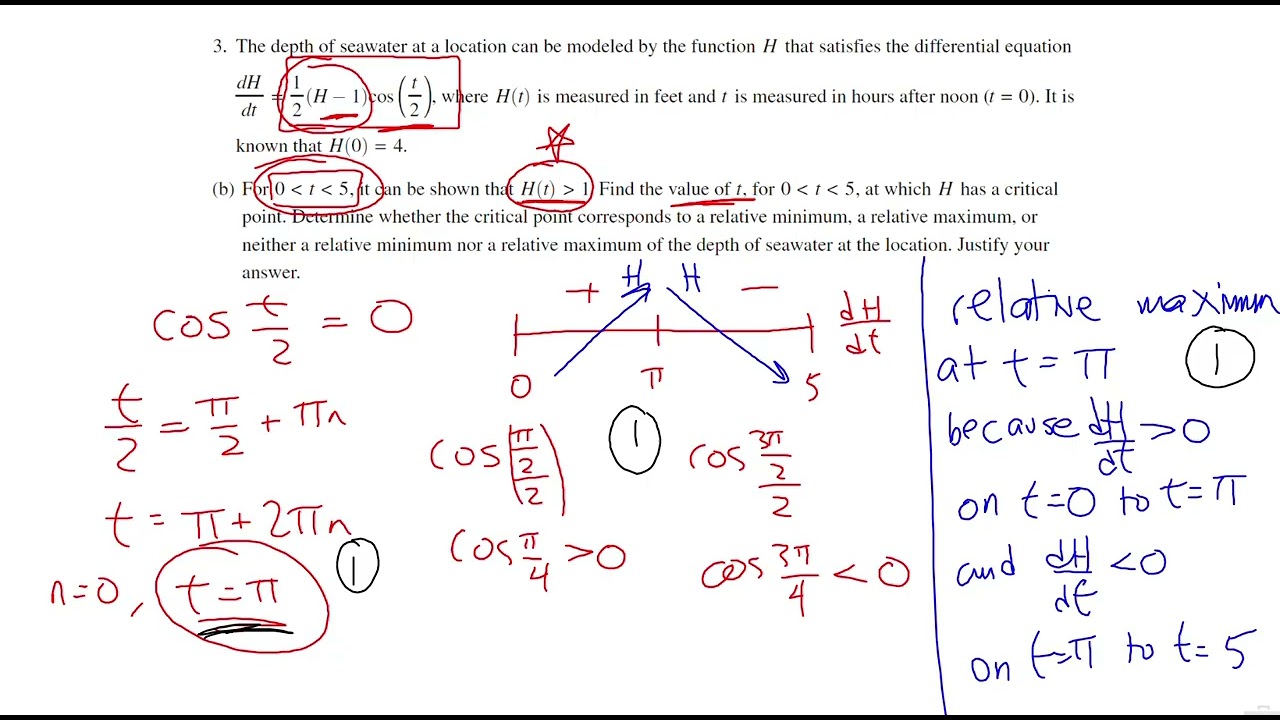 3. The depth of seawater at a location can be modeled by the function H that satisfies the differential equation
dH/dt = 1/2 (H − 1)cos(t/2), where H(t) is measured in feet and t is measured in hours after noon (t = 0). It is
known that H(0) = 4.
(b) For 0 < t < 5, it can be shown that H(t) > 1. Find the value of t, for 0 < t < 5, at which H has a critical
point. Determine whether the critical point corresponds to a relative minimum, a relative maximum, or
neither a relative minimum nor a relative maximum of the depth of seawater at the location. Justify your
answer.
cos t/2 = 0
t/2 = π/2 + πn
t = π + 2πn
n=0, t = π
1
+ H H −
dH/dt
0 π 5
cos(π/2/2)
1
cos 3π/2/2
cos π/4 > 0
cos 3π/4 < 0
relative maximum
at t = π
1
because dH/dt > 0
on t=0 to t=π
and dH/dt < 0
on t=π to t=5